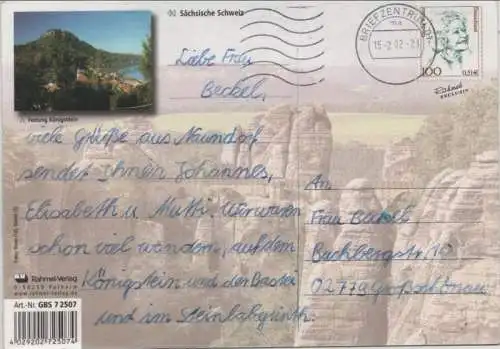 Sächsische Schweiz
Festung Königstein
BRIEFZENTRUM 01
ma
15-2.02-21
100
0,51€
Liebe Frau
Beckel,
viele Grüße aus Naundorf
senden Ihnen Johannes,
Elisabeth u. Mutti. Wir waren
schon viel wandern, auf dem
Königstein und der Bastei
und im Steinlabyrinth.
An
Frau Beckel
Buchbergstr. 10
02779 Großschönau
Rahmel-Verlag
D-50259 Pulheim
www.rahmel-verlag.de
Art.-Nr. GBS 7 2507
4 029202 725074